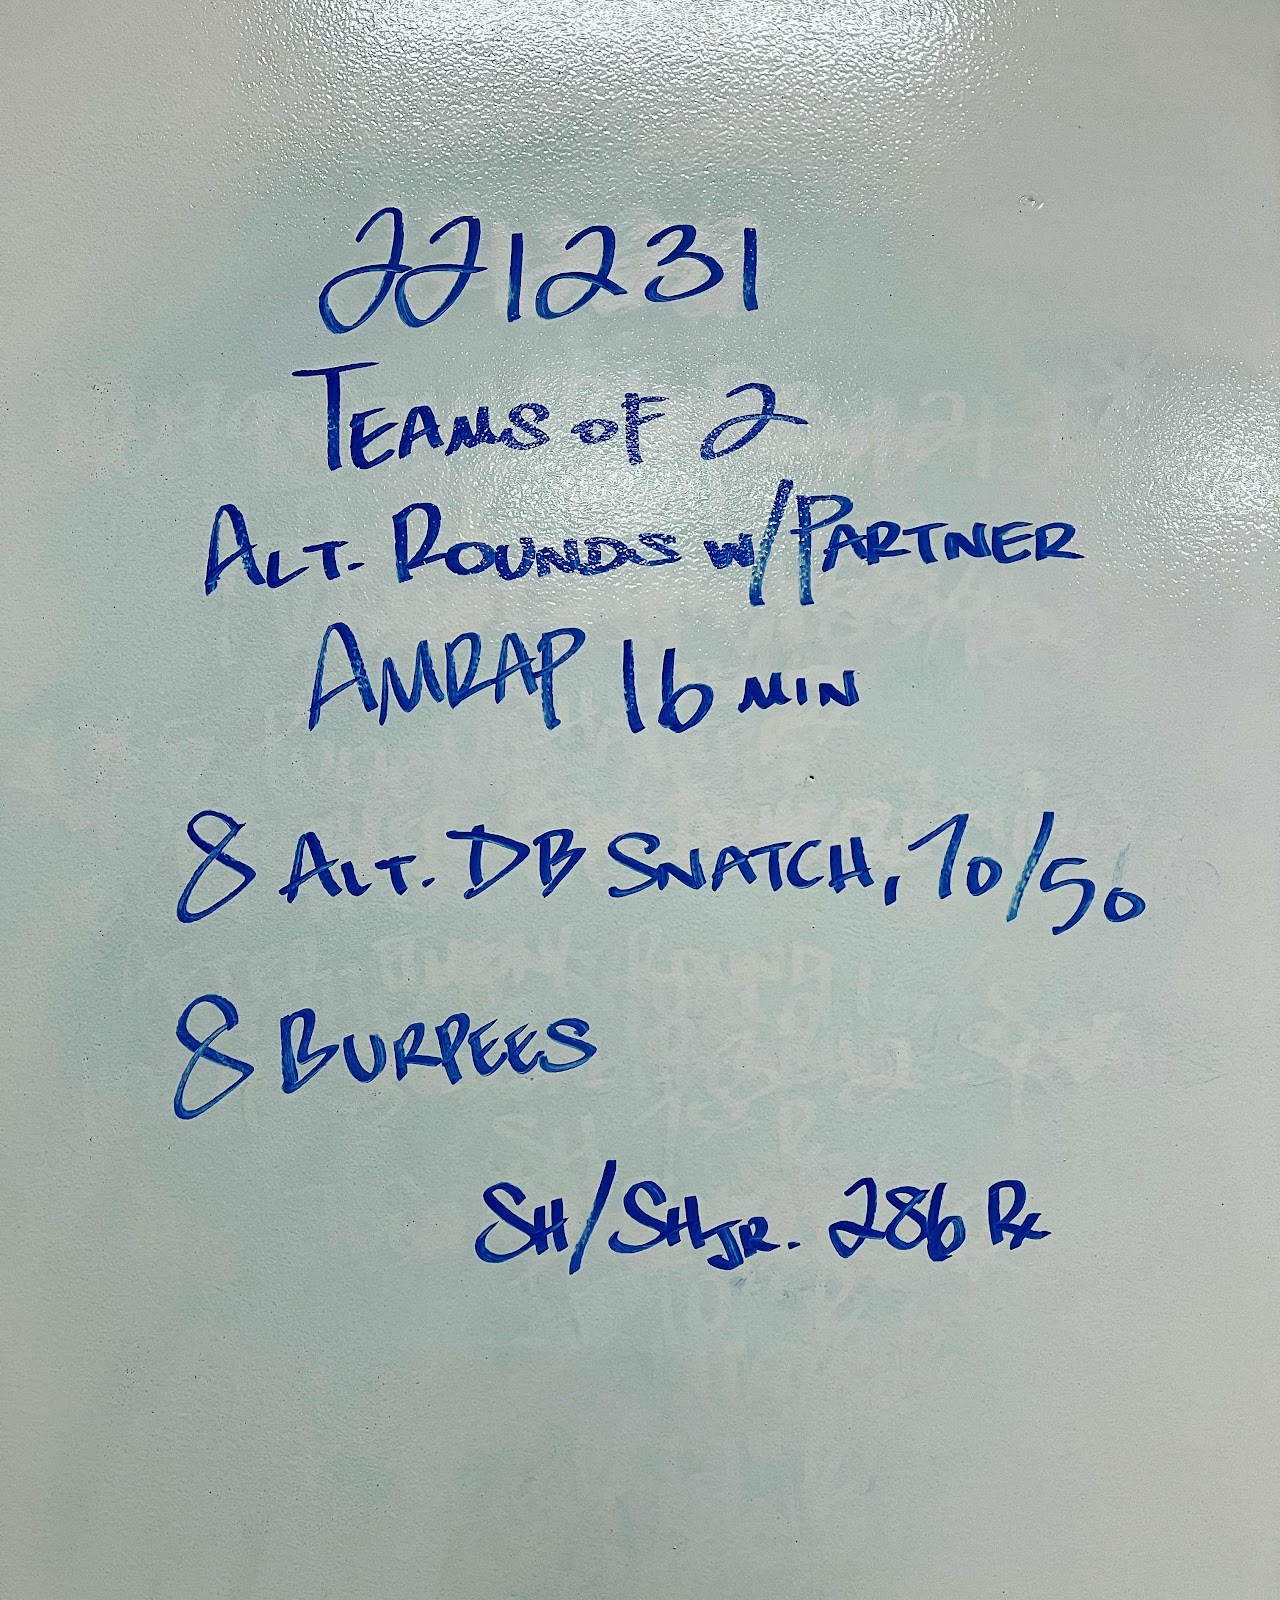 221231
TEAMS OF 2
ALT. ROUNDS W/PARTNER
AMRAP 16 MIN
8 ALT. DB SNATCH, 70/50
8 BURPEES
SH/SHJR. 286 Rx